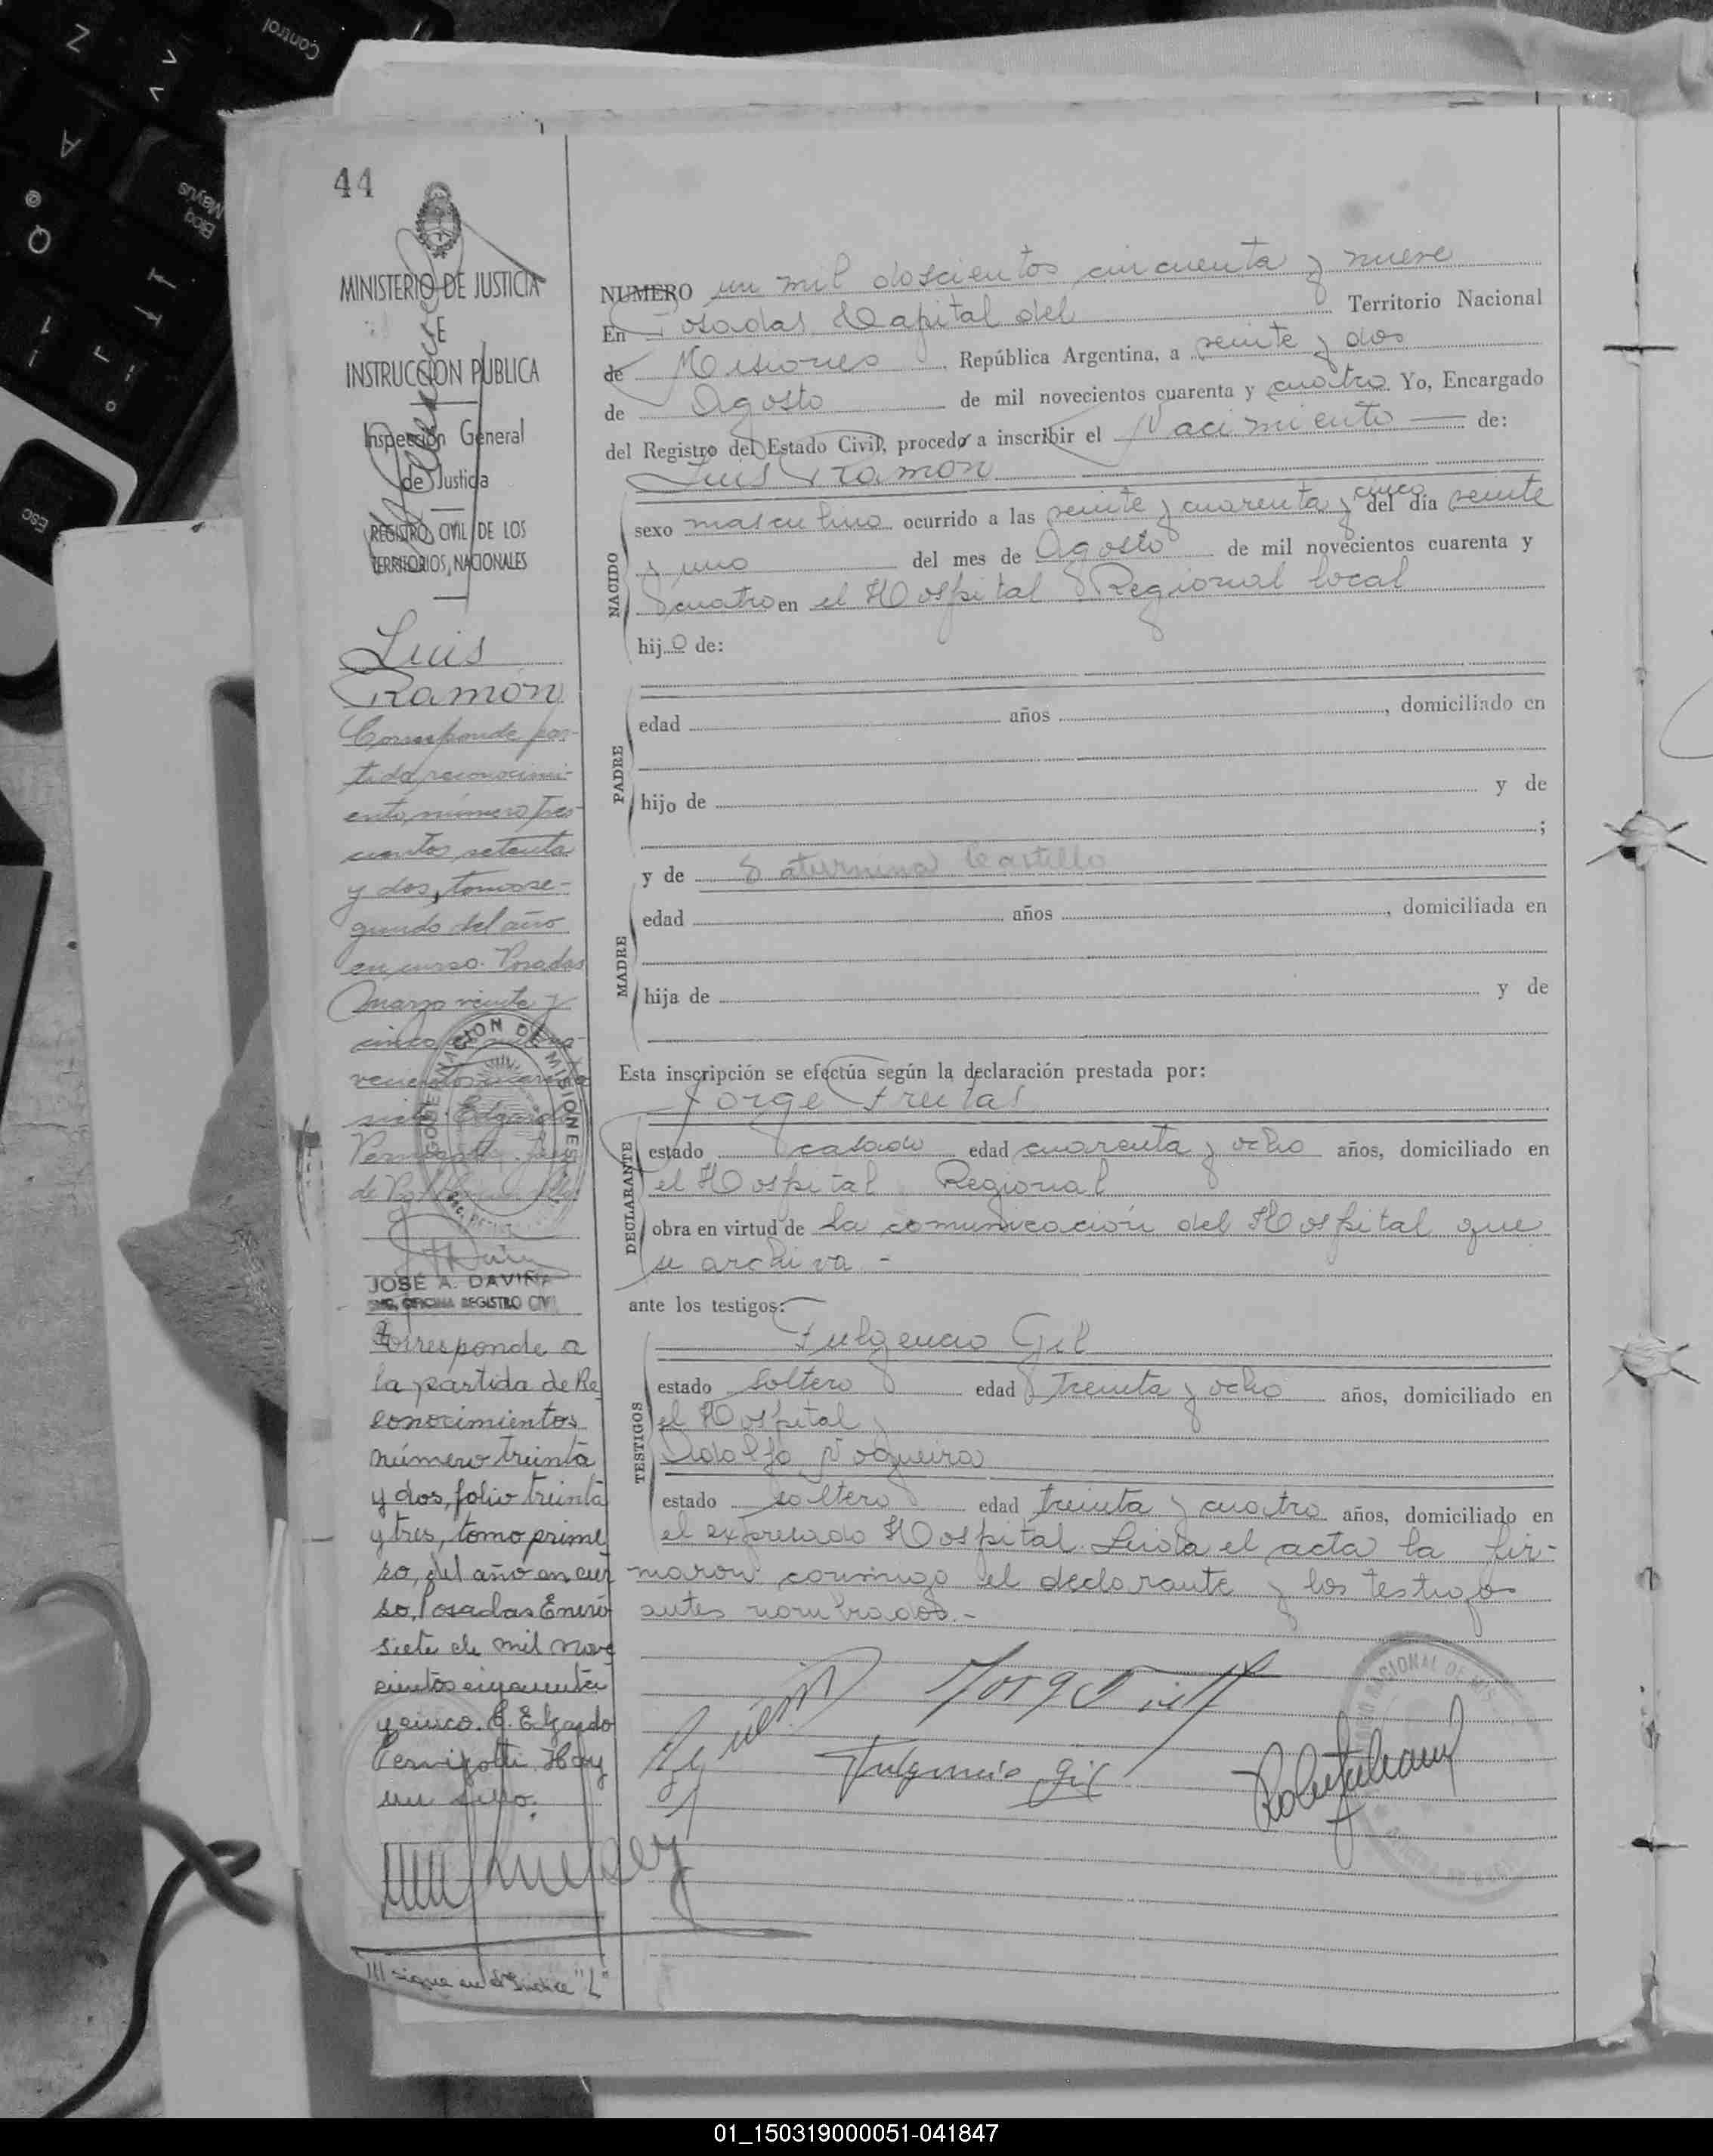 44
MINISTERIO DE JUSTICIA
E
INSTRUCCION PUBLICA
Inspección General
de Justicia
REGISTRO CIVIL DE LOS
TERRITORIOS NACIONALES
Luis
Ramón
Corresponde par-
tida reconocimi-
ento, número tres-
cientos setenta
y dos, tomo se-
gundo del año
en curso. Posadas
Marzo veinte y
cinco de mil no-
vecientos cuarenta
siete. Edgardo
JOSÉ A. DAVIÑA
ENC. OFICINA REGISTRO CIVIL
Corresponde a
la partida de Re
conocimientos
número treinta
y dos, folio treinta
y tres, tomo prime
ro, del año en cur
so, Posadas Enero
siete de mil nove
cientos cincuenta
y cinco. E. Edgardo
Pernigotti. Hay
un sello.
/// sigue en el Indice "L"
NUMERO un mil doscientos cincuenta y nueve
En Posadas Capital del Territorio Nacional
de Misiones República Argentina, a veinte y dos
de Agosto de mil novecientos cuarenta y cuatro Yo, Encargado
del Registro del Estado Civil, procedo a inscribir el Nacimiento de:
Luis Ramón
NACIDO
sexo masculino ocurrido a las veinte y cuarenta y cinco del día veinte
y uno del mes de Agosto de mil novecientos cuarenta y
cuatro en el Hospital Regional local
hijo de:
PADRE
edad años , domiciliado en
hijo de y de
;
y de Saturnina Castillo
MADRE
edad años , domiciliada en
hija de y de
Esta inscripción se efectúa según la declaración prestada por:
Jorge Freitas
DECLARANTE
estado casado edad cuarenta y ocho años, domiciliado en
el Hospital Regional
obra en virtud de la comunicación del Hospital que
se archiva -
ante los testigos:
Fulgencio Gil
TESTIGOS
estado soltero edad treinta y ocho años, domiciliado en
el Hospital y
Adolfo Nogueira
estado soltero edad treinta y cuatro años, domiciliado en
el expresado Hospital. Leida el acta la fir-
maron conmigo el declarante y los testigos
antes nombrados.-
Fulgencio Gil
01_150319000051-041847